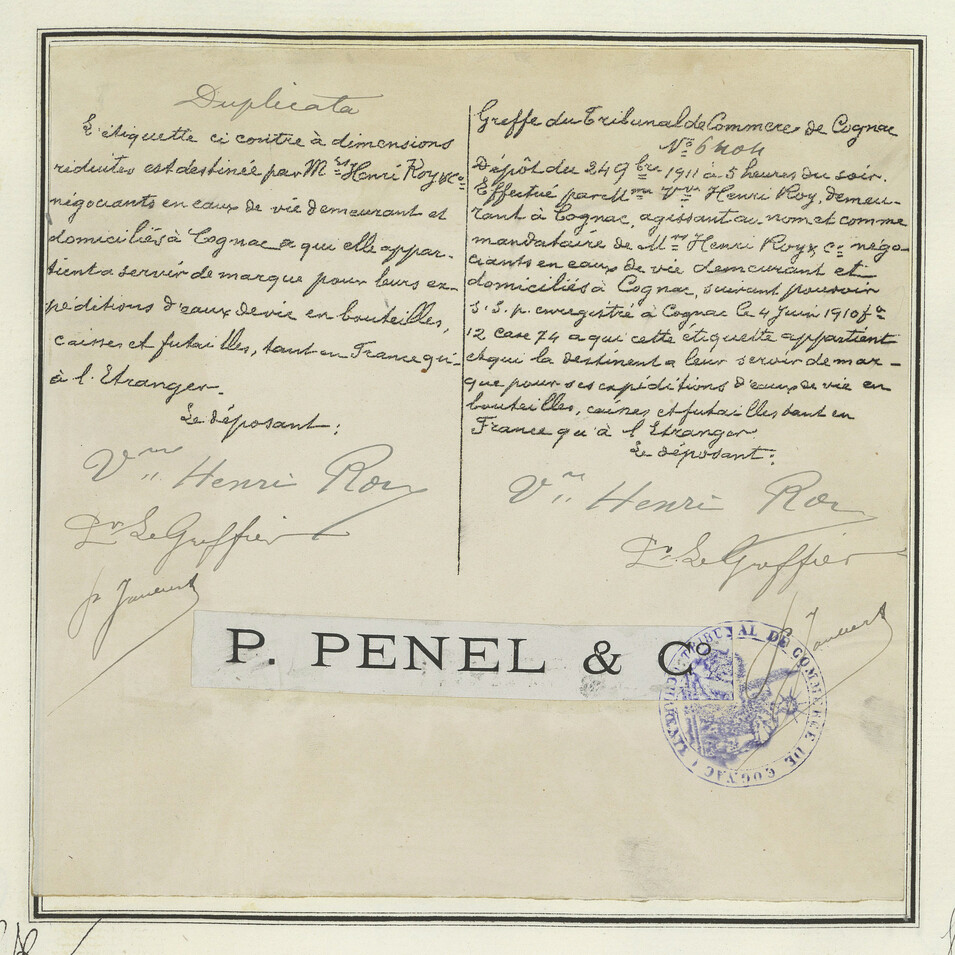 Duplicata
L'étiquette ci contre à dimensions
réduites est destinée par M.rs Henri Roy & Co
négociants en eaux de vie demeurant et
domiciliés à Cognac a qui elle appar-
tient a servir de marque pour leurs ex-
péditions d'eaux de vie en bouteilles,
caisses et futailles, tant en France qu'
à l'Etranger.
Le déposant:
Vve Henri Roy
Pr Le Greffier
Greffe du Tribunal de Commerce de Cognac
No 6404
Dépôt du 24 9bre 1911 à 5 heures du soir.
Effectué par Mme Vve Henri Roy, demeu-
rant à Cognac, agissant au nom et comme
mandataire de Mrs Henri Roy & Co négo-
ciants en eaux de vie demeurant et
domiciliés à Cognac, suivant pouvoir
S. S. p. enregistré à Cognac le 4 Juin 1910 fo
12 case 74 a qui cette étiquette appartient
et qui la destinent a leur servir de mar-
que pour ses expéditions d'eaux de vie en
bouteilles, caisses et futailles tant en
France qu'à l'Etranger
Le déposant:
Vve Henri Roy
Pr Le Greffier
P. PENEL & Co
TRIBUNAL DE COMMERCE DE COGNAC